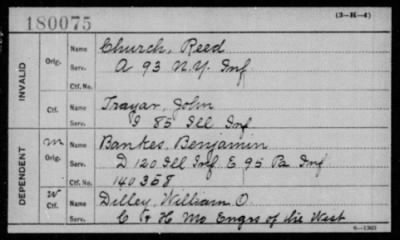 180075 (3-H-4)
INVALID Orig. Name Church, Reed
Serv. A 93 N.Y. Inf
Ctf. No.
Ctf. Name Trayar, John
Serv. I 85 Ill Inf
DEPENDENT m Orig. Name Bankes, Benjamin
Serv. D 120 Ill Inf E 95 Pa Inf
Ctf. No. 140358
W Ctf. Name Dilley, William O.
Serv. C & H Mo Engrs of the West
6—1303